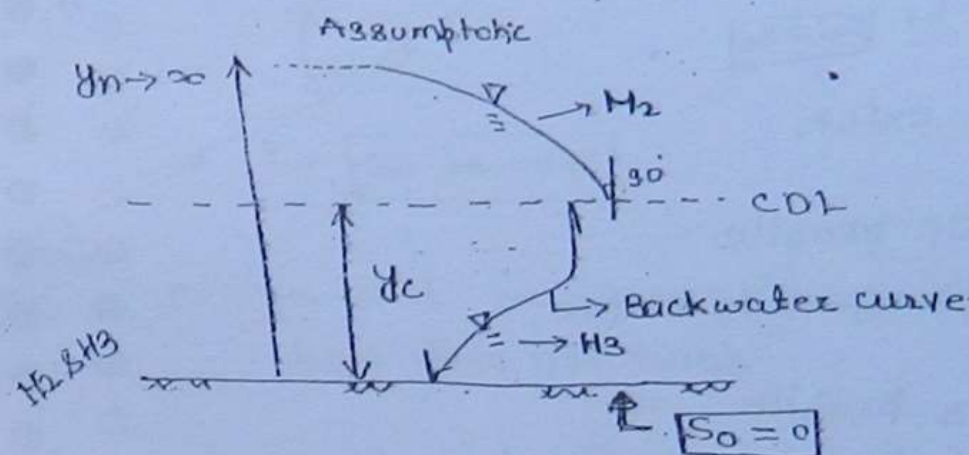 Assumptotic
yn→∞
→ M2
90°
CDL
yc
→ Backwater curve
→ H3
H2 & H3
S0 = 0